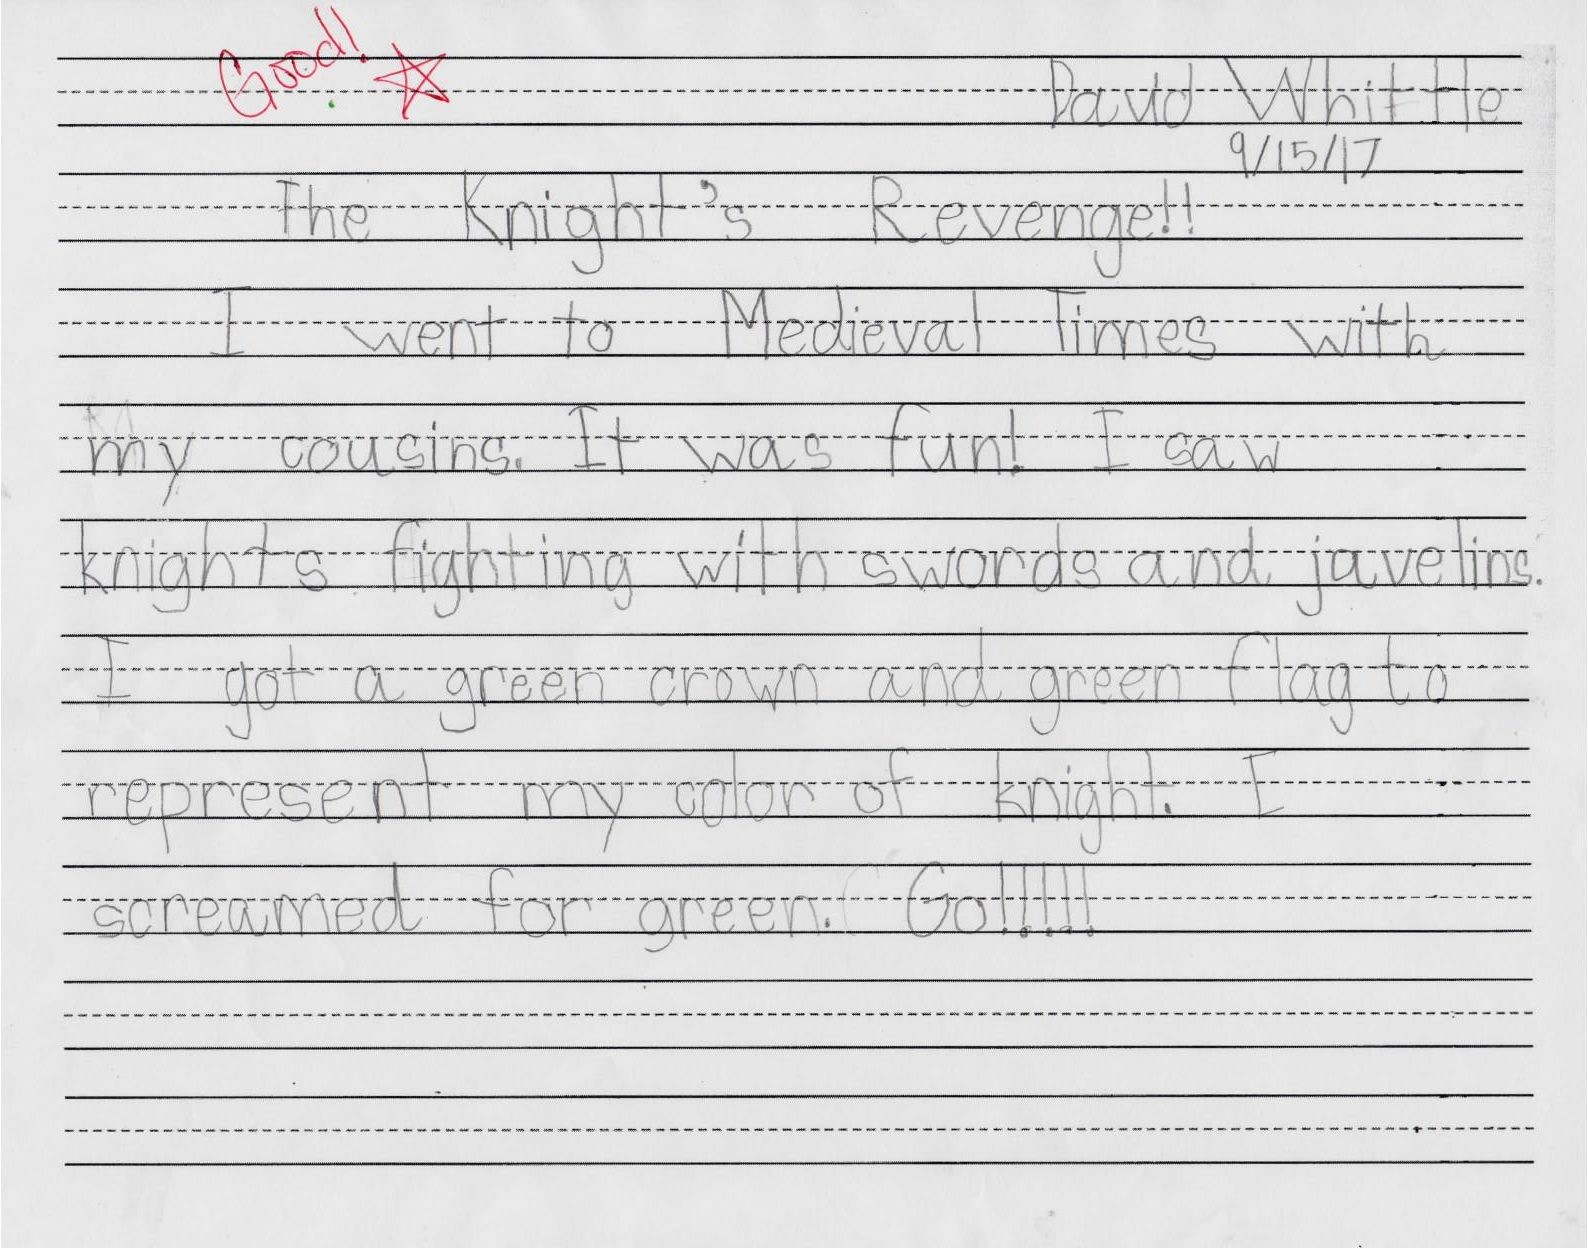 Good!
David Whittle
9/15/17
The Knight's Revenge!!
I went to Medieval Times with
my cousins. It was fun! I saw
knights fighting with swords and javelins.
I got a green crown and green flag to
represent my color of knight. I
screamed for green. Go!!!!!